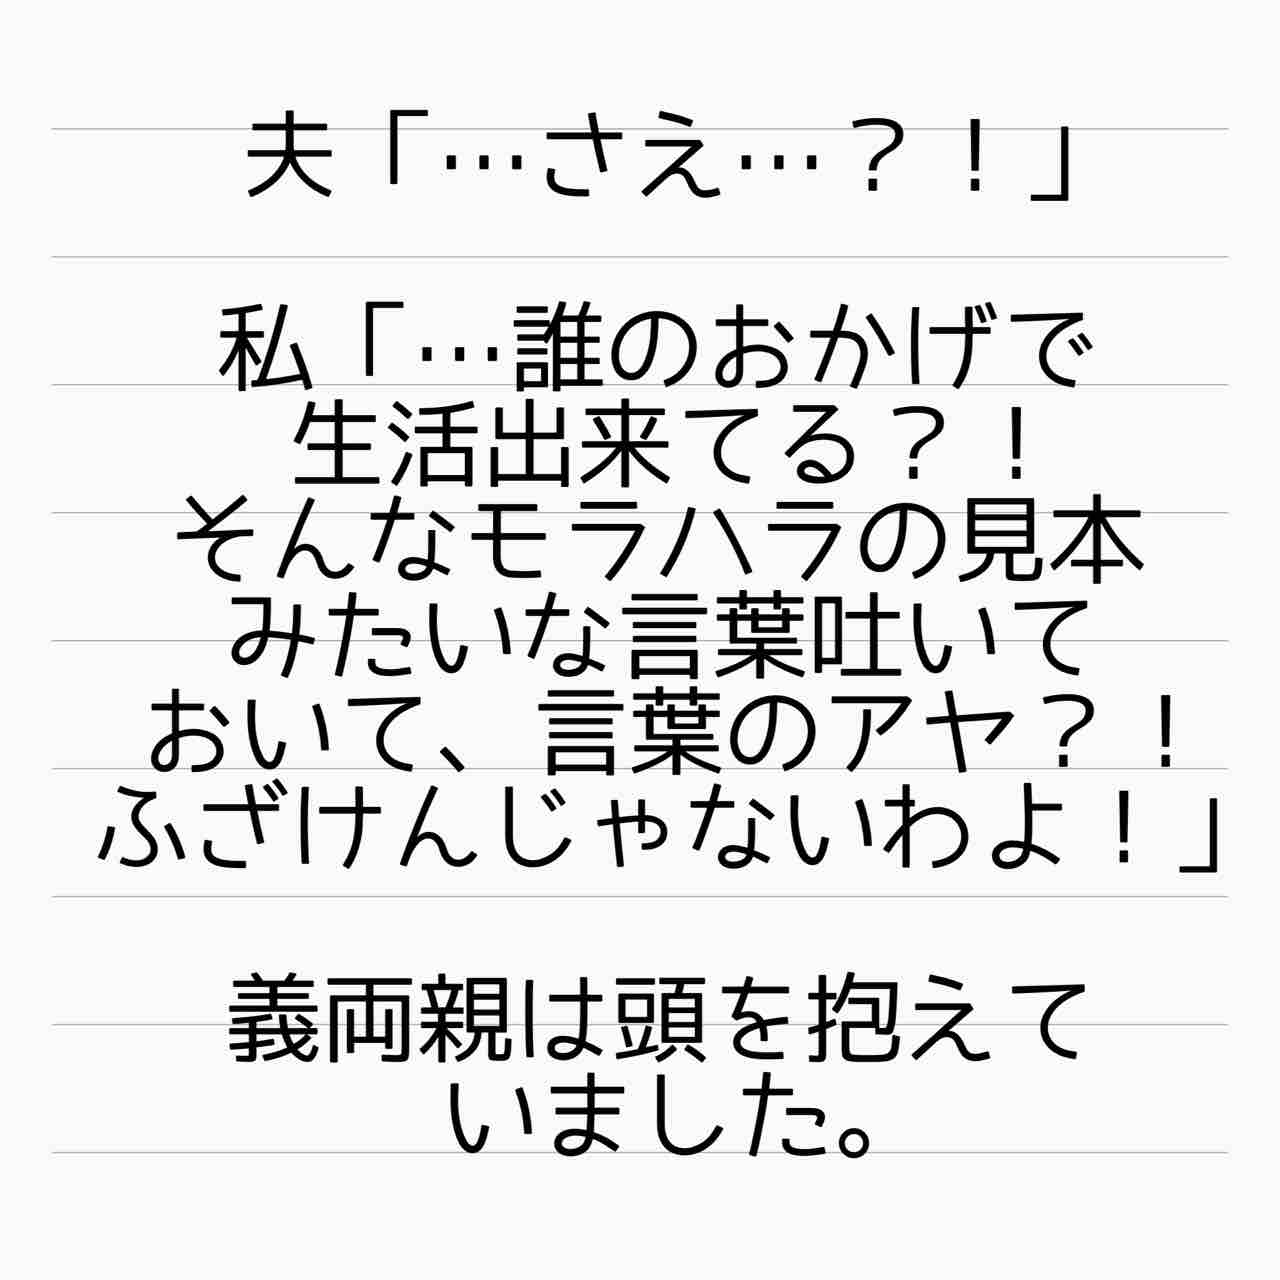 夫「…さえ…？！」
私「…誰のおかげで
生活出来てる？！
そんなモラハラの見本
みたいな言葉吐いて
おいて、言葉のアヤ？！
ふざけんじゃないわよ！」
義両親は頭を抱えて
いました。